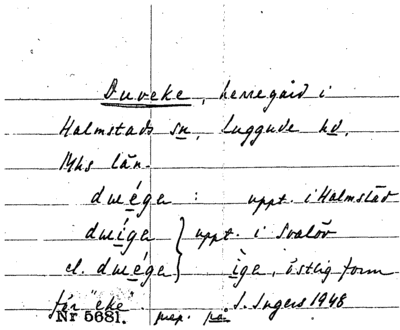 Duveke, herregård i
Halmstads sn, Luggude hd,
Mhs län.
duéga : uppt. i Halmstad
duíga } uppt. i Svalöv
el. duéga } ìga, östlig form
för "eke". I. Ingers 1948
Nr 5681. prep. på